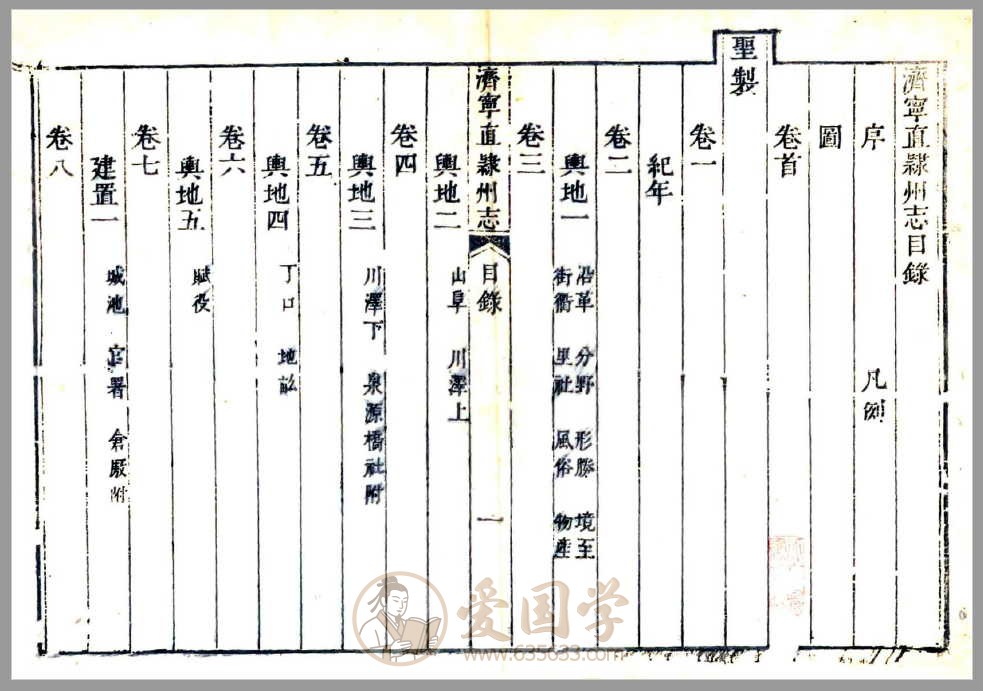 濟寧直隸州志目錄
序 凡例
圖
卷首
聖製
卷一
紀年
卷二
輿地一 沿革 分野 形勝 境至 街衢 里社 風俗 物產
卷三
濟寧直隸州志 目錄 一
輿地二 山阜 川澤上
卷四
輿地三 川澤下 泉源橋社附
卷五
輿地四 丁口 地畝
卷六
輿地五 賦役
卷七
建置一 城池 官署 倉厫附
卷八
爱国学
www.635633.com